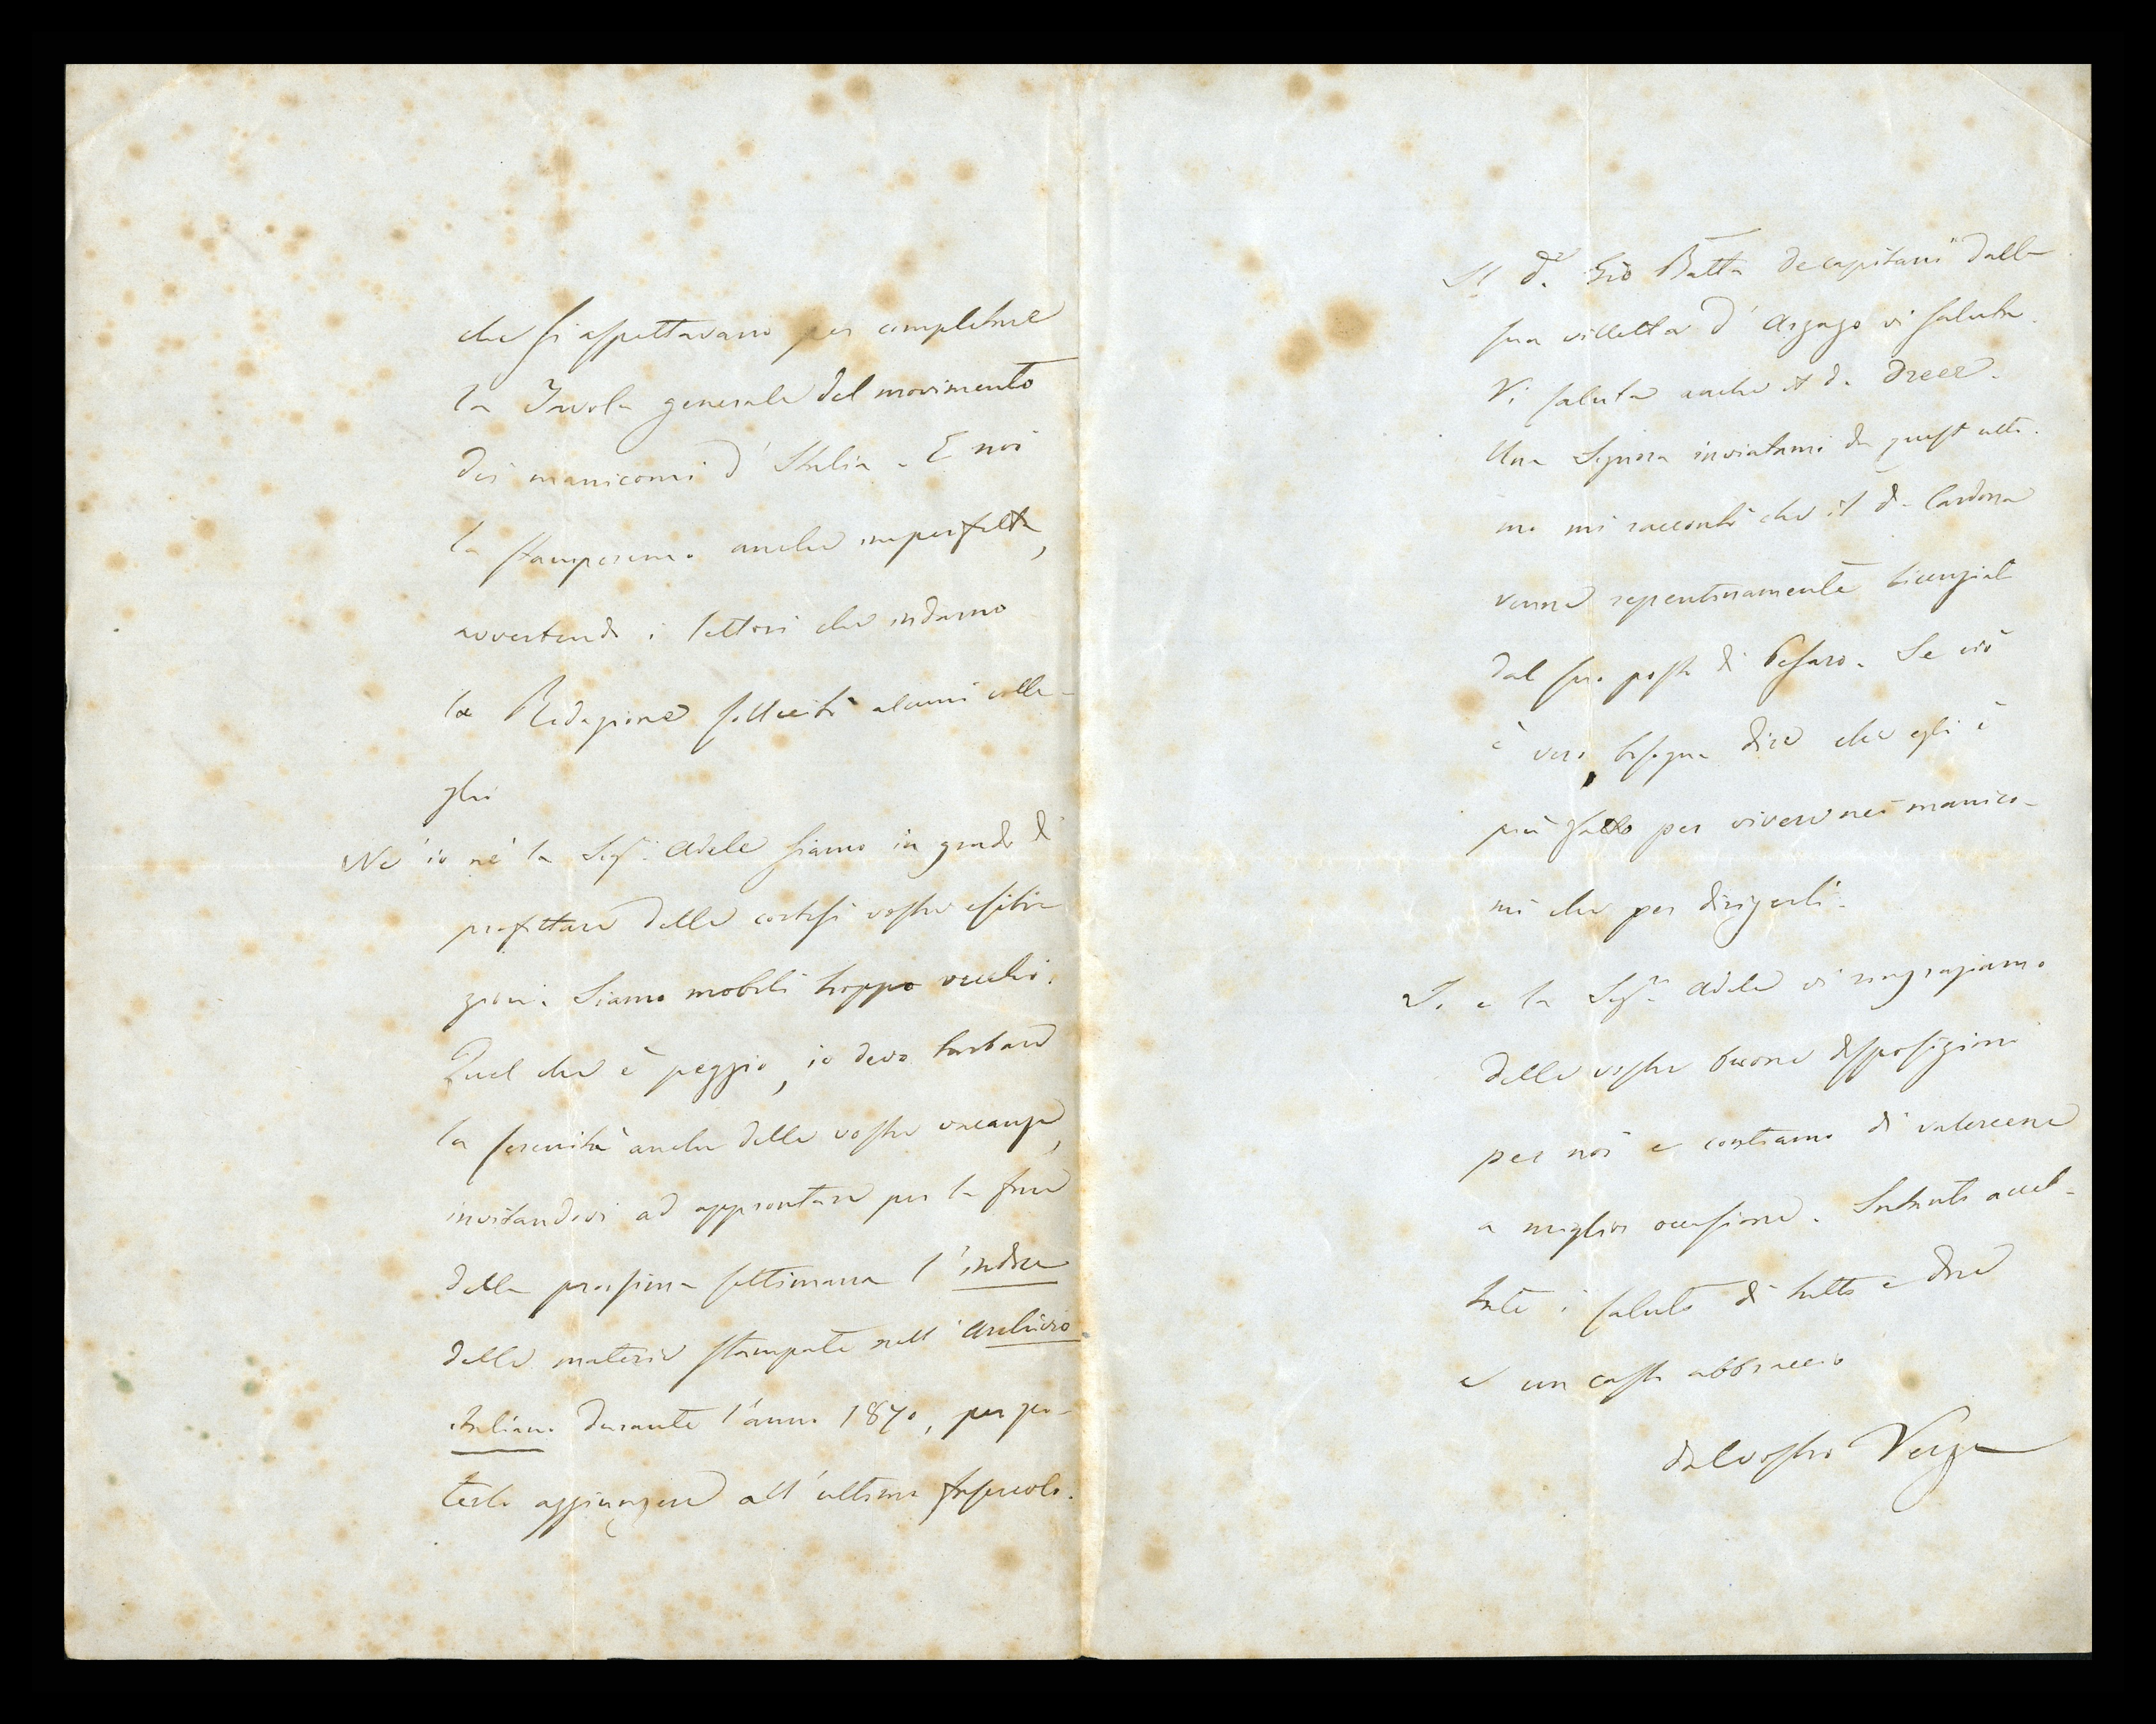 che si aspettavano per completare
la Tavola generale del movimento
dei manicomi d'Italia. E noi
la stamperemo anche imperfetta,
avvertendo i lettori che indarno
la Redazione sollecitò alcuni colle-
ghi
Nè io nè la Sig.ª Adele siamo in grado di
profittare delle cortesi vostre esibi-
zioni. Siamo mobili troppo vecchi.
Quel che è peggio, io devo turbare
la serenità anche delle vostre vacanze,
invitandovi ad approntare per la fine
della prossima settimana l'indice
delle materie stampate nell'Archivio
italiano durante l'anno 1870, per po-
terlo aggiungere all'ultimo fascicolo.
Il d.r Gio Batta Decapitani dalla
sua villetta d' vi saluta.
Vi saluta anche il d.
Una Signora inviatami da quest'ulti-
mo mi raccontò che il d. Cardona
venne repentinamente licenziato
dal suo posto di Pesaro. Se ciò
è vero, bisogna dire che egli è
più fatto per vivere nei manico-
mi che per dirigerli.
Io e la Sig.ra Adele vi ringraziamo
delle vostre buone disposizioni
per noi e contiamo di valercene
a miglior occasione. Intanto accet-
tate i saluti di tutti e due
e un casto abbraccio
dal vostro Verga